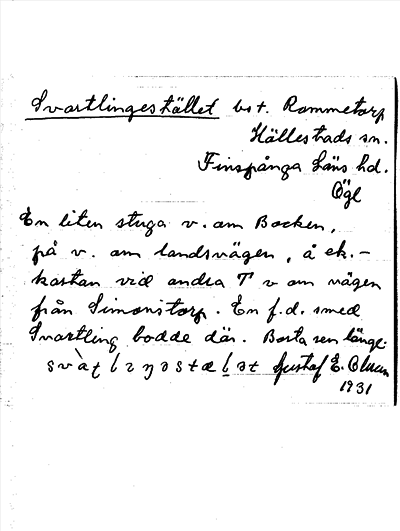 Svartlingestället bst. Rammetorp
Hällestads sn.
Finspånga Läns hd.
Ögl
En liten stuga v. om Backen,
på v. om landsvägen, å ek.-
kartan vid andra T v om vägen
från Simonstorp. En f.d. smed
Svartling bodde där. Borta sen länge.
Gustaf E. Olsson
1931